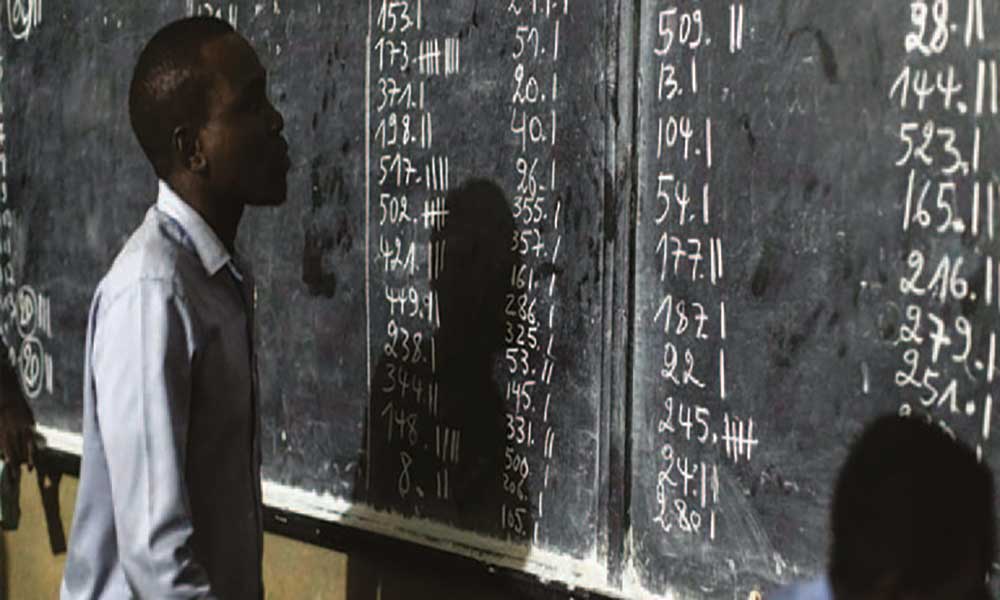 153. |
173. |||| ||||
371. |
198. ||
517. ||||
502. ||||
421. |||
449. ||
238. |
344 ||
148. ||||
8. ||
51. |
20. |
40. |
26. |
355. |
357. |
161. |
286. |
325. |
53. ||
145. |
331. ||
105. |
509. ||
13. |
104. |
54. |
177. ||
187. |
22 |
245. ||||
24. ||
280 |
28. ||
144. ||
523. |
165. ||
216. ||
279. |
251. |
20 |||
20 ||